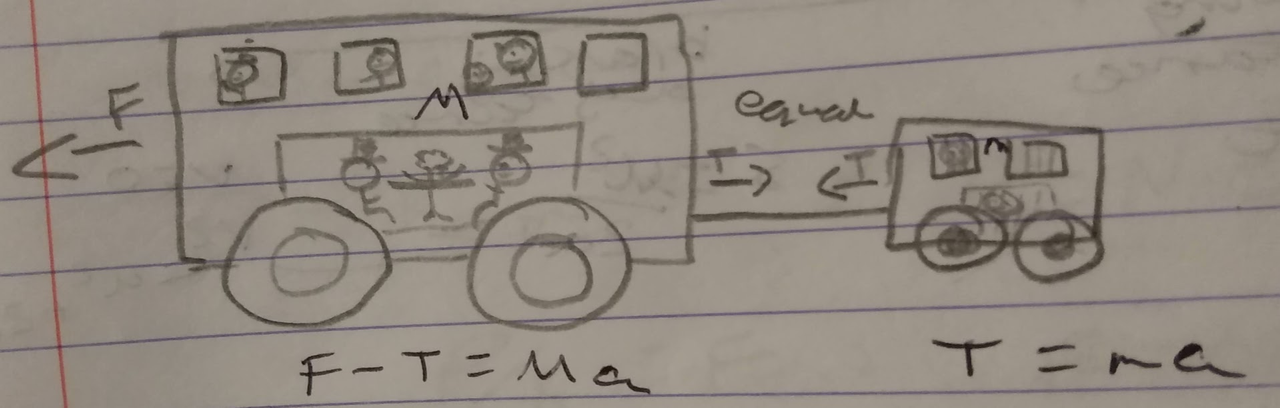 F
M
equal
T
T
m
F - T = Ma
T = ma